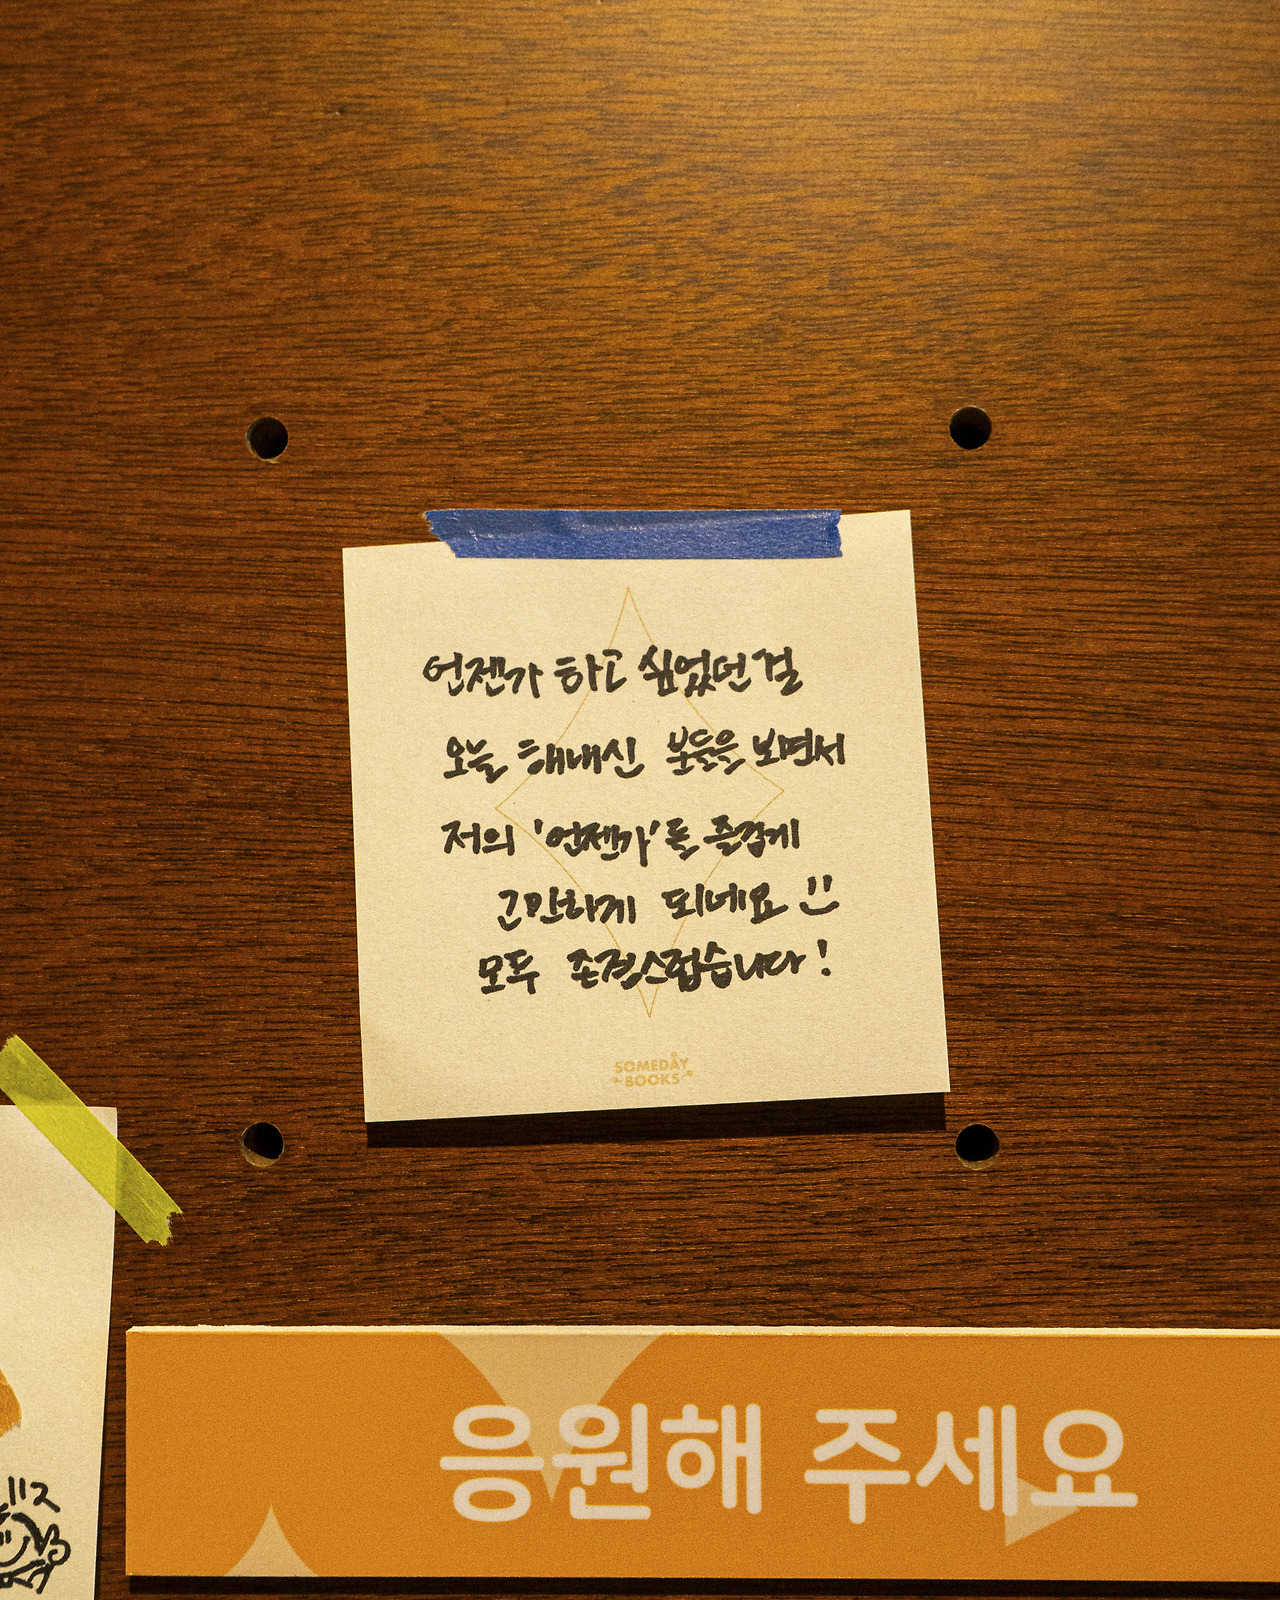 언젠가 하고 싶었던 걸
오늘 해내신 분들을 보면서
저의 '언젠가'를 즐겁게
근만하게 되네요 :)
모두 존경스럽습니다!
SOMEDAY
BOOKS
응원해 주세요